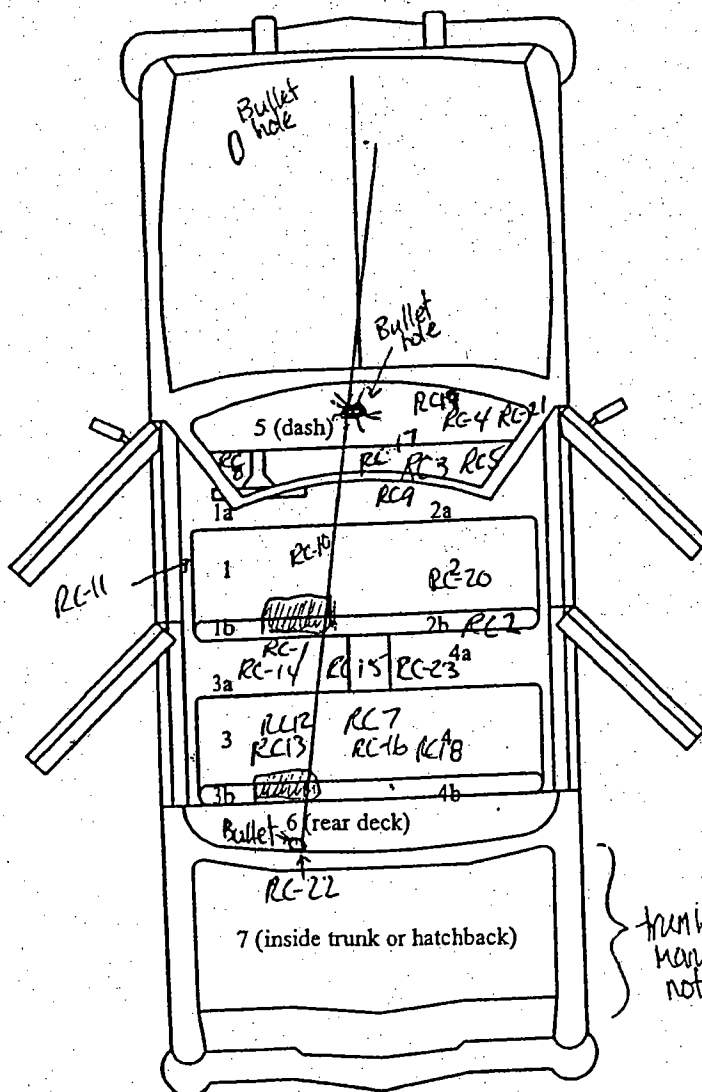 Bullet
hole
Bullet
hole
5 (dash)
RC19
RC-4
RC-21
RC
8
RC-17
RC-3
RC5
RC9
1a
2a
RC-11
1
RC-10
2
RC-20
1b
2b
RC2
RC-1
RC-14
RC15
RC-23
4a
3a
3
RC12
RC13
RC7
RC-16
4
3b
4b
6 (rear deck)
Bullet
RC-22
7 (inside trunk or hatchback)
not